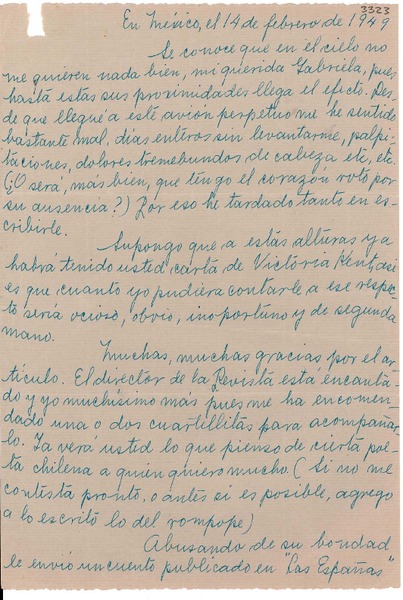 3323
En México, el 14 de febrero de 1949
Se conoce que en el cielo no
me quieren nada bien, mi querida Gabriela, pues
hasta estas sus proximidades llega el efecto. Des-
de que llegué a este avión perpetuo me he sentido
bastante mal, días enteros sin levantarme, palpi-
taciones, dolores tremebundos de cabeza etc, etc.
(¿O será, mas bien, que tengo el corazón roto por
su ausencia?) Por eso he tardado tanto en es-
cribirle.
Supongo que a estas alturas ya
habrá tenido usted carta de Victoria Kent, así
es que cuanto yo pudiera contarle a ese respec-
to sería ocioso, obvio, inoportuno y de segunda
mano.
Muchas, muchas gracias por el ar-
tículo. El director de la Revista está encanta-
do y yo muchísimo más pues me ha encomen-
dado una o dos cuartillitas para acompañar-
lo. Ya verá usted lo que pienso de cierta poe-
ta chilena a quien quiero mucho. (Si no me
contesta pronto, o antes si es posible, agrego
a lo escrito lo del rompope)
Abusando de su bondad
le envío un cuento publicado en "Las Españas"